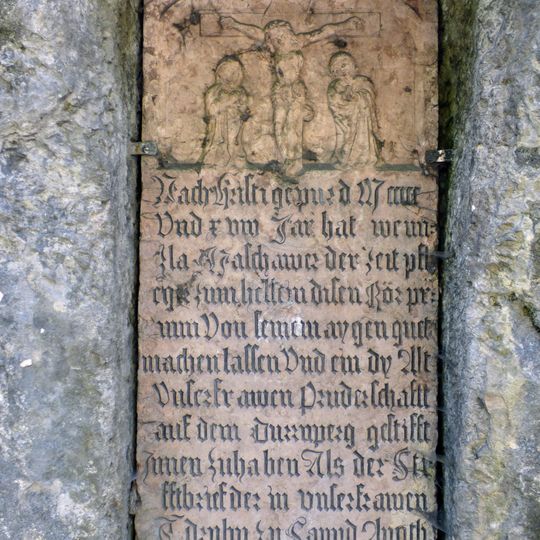 Nach Cristi gepurd M cccc
Und x vιιι Jar hat wenn
der Zeit pfl
eger zum hellein disen Rör pr
unn Von seinem aygen guet
machen lassen Und ein dy Alt
Unser frawen Pruderschafft
auf dem Durrnperg gestifft
Innen zuhaben Als der Sti
fftbrief der in unser frawen
zu Sannd